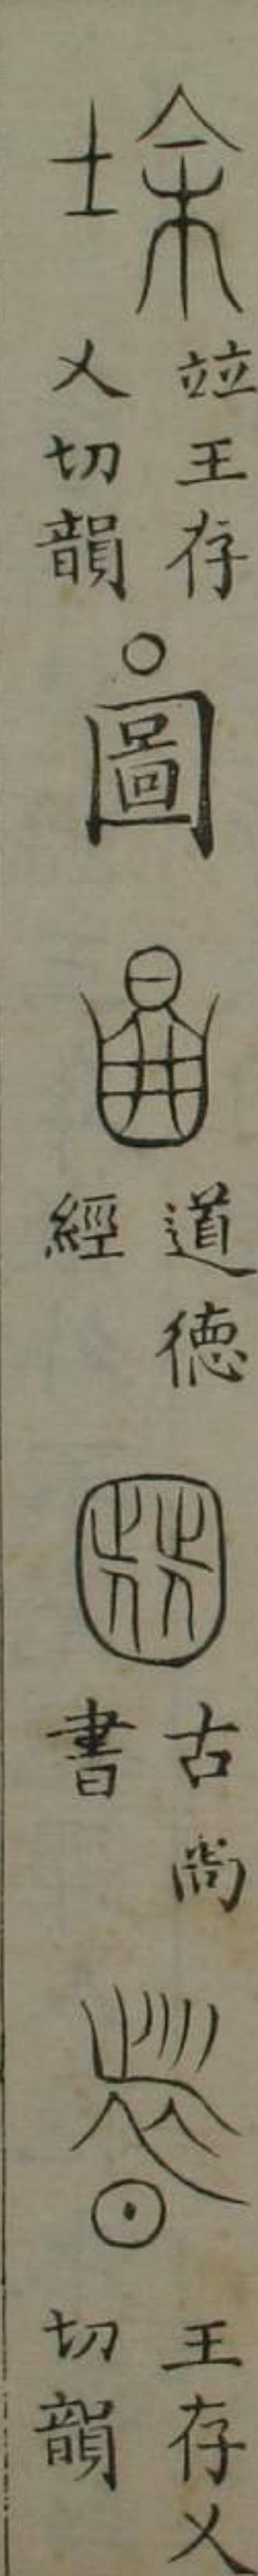 竝王存
乂切韻
○圖
道徳
經
古尚
書
王存乂
切韻